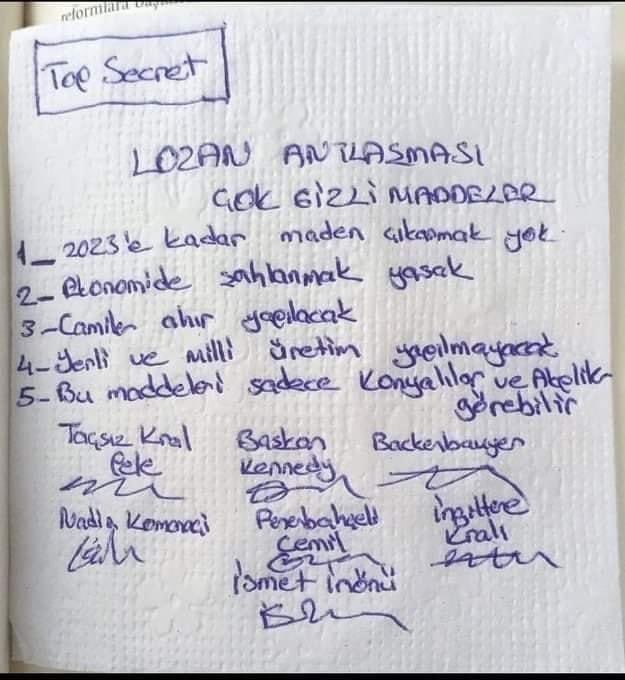 reformlara başla
Top Secret
LOZAN ANTLAŞMASI
ÇOK GİZLİ MADDELER
1_ 2023'e kadar maden çıkarmak yok.
2- Ekonomide şahlanmak yasak
3-Camiler ahır yapılacak
4-Yerli ve milli üretim yapılmayacak
5-Bu maddeleri sadece Konyalılar ve Akelik
görebilir
Taçsız Kral Başkan Backenbauyer
Pele Kennedy
Nadia Komanaçi Fenerbahçeli İngiltere
Cemil Kralı
İsmet İnönü